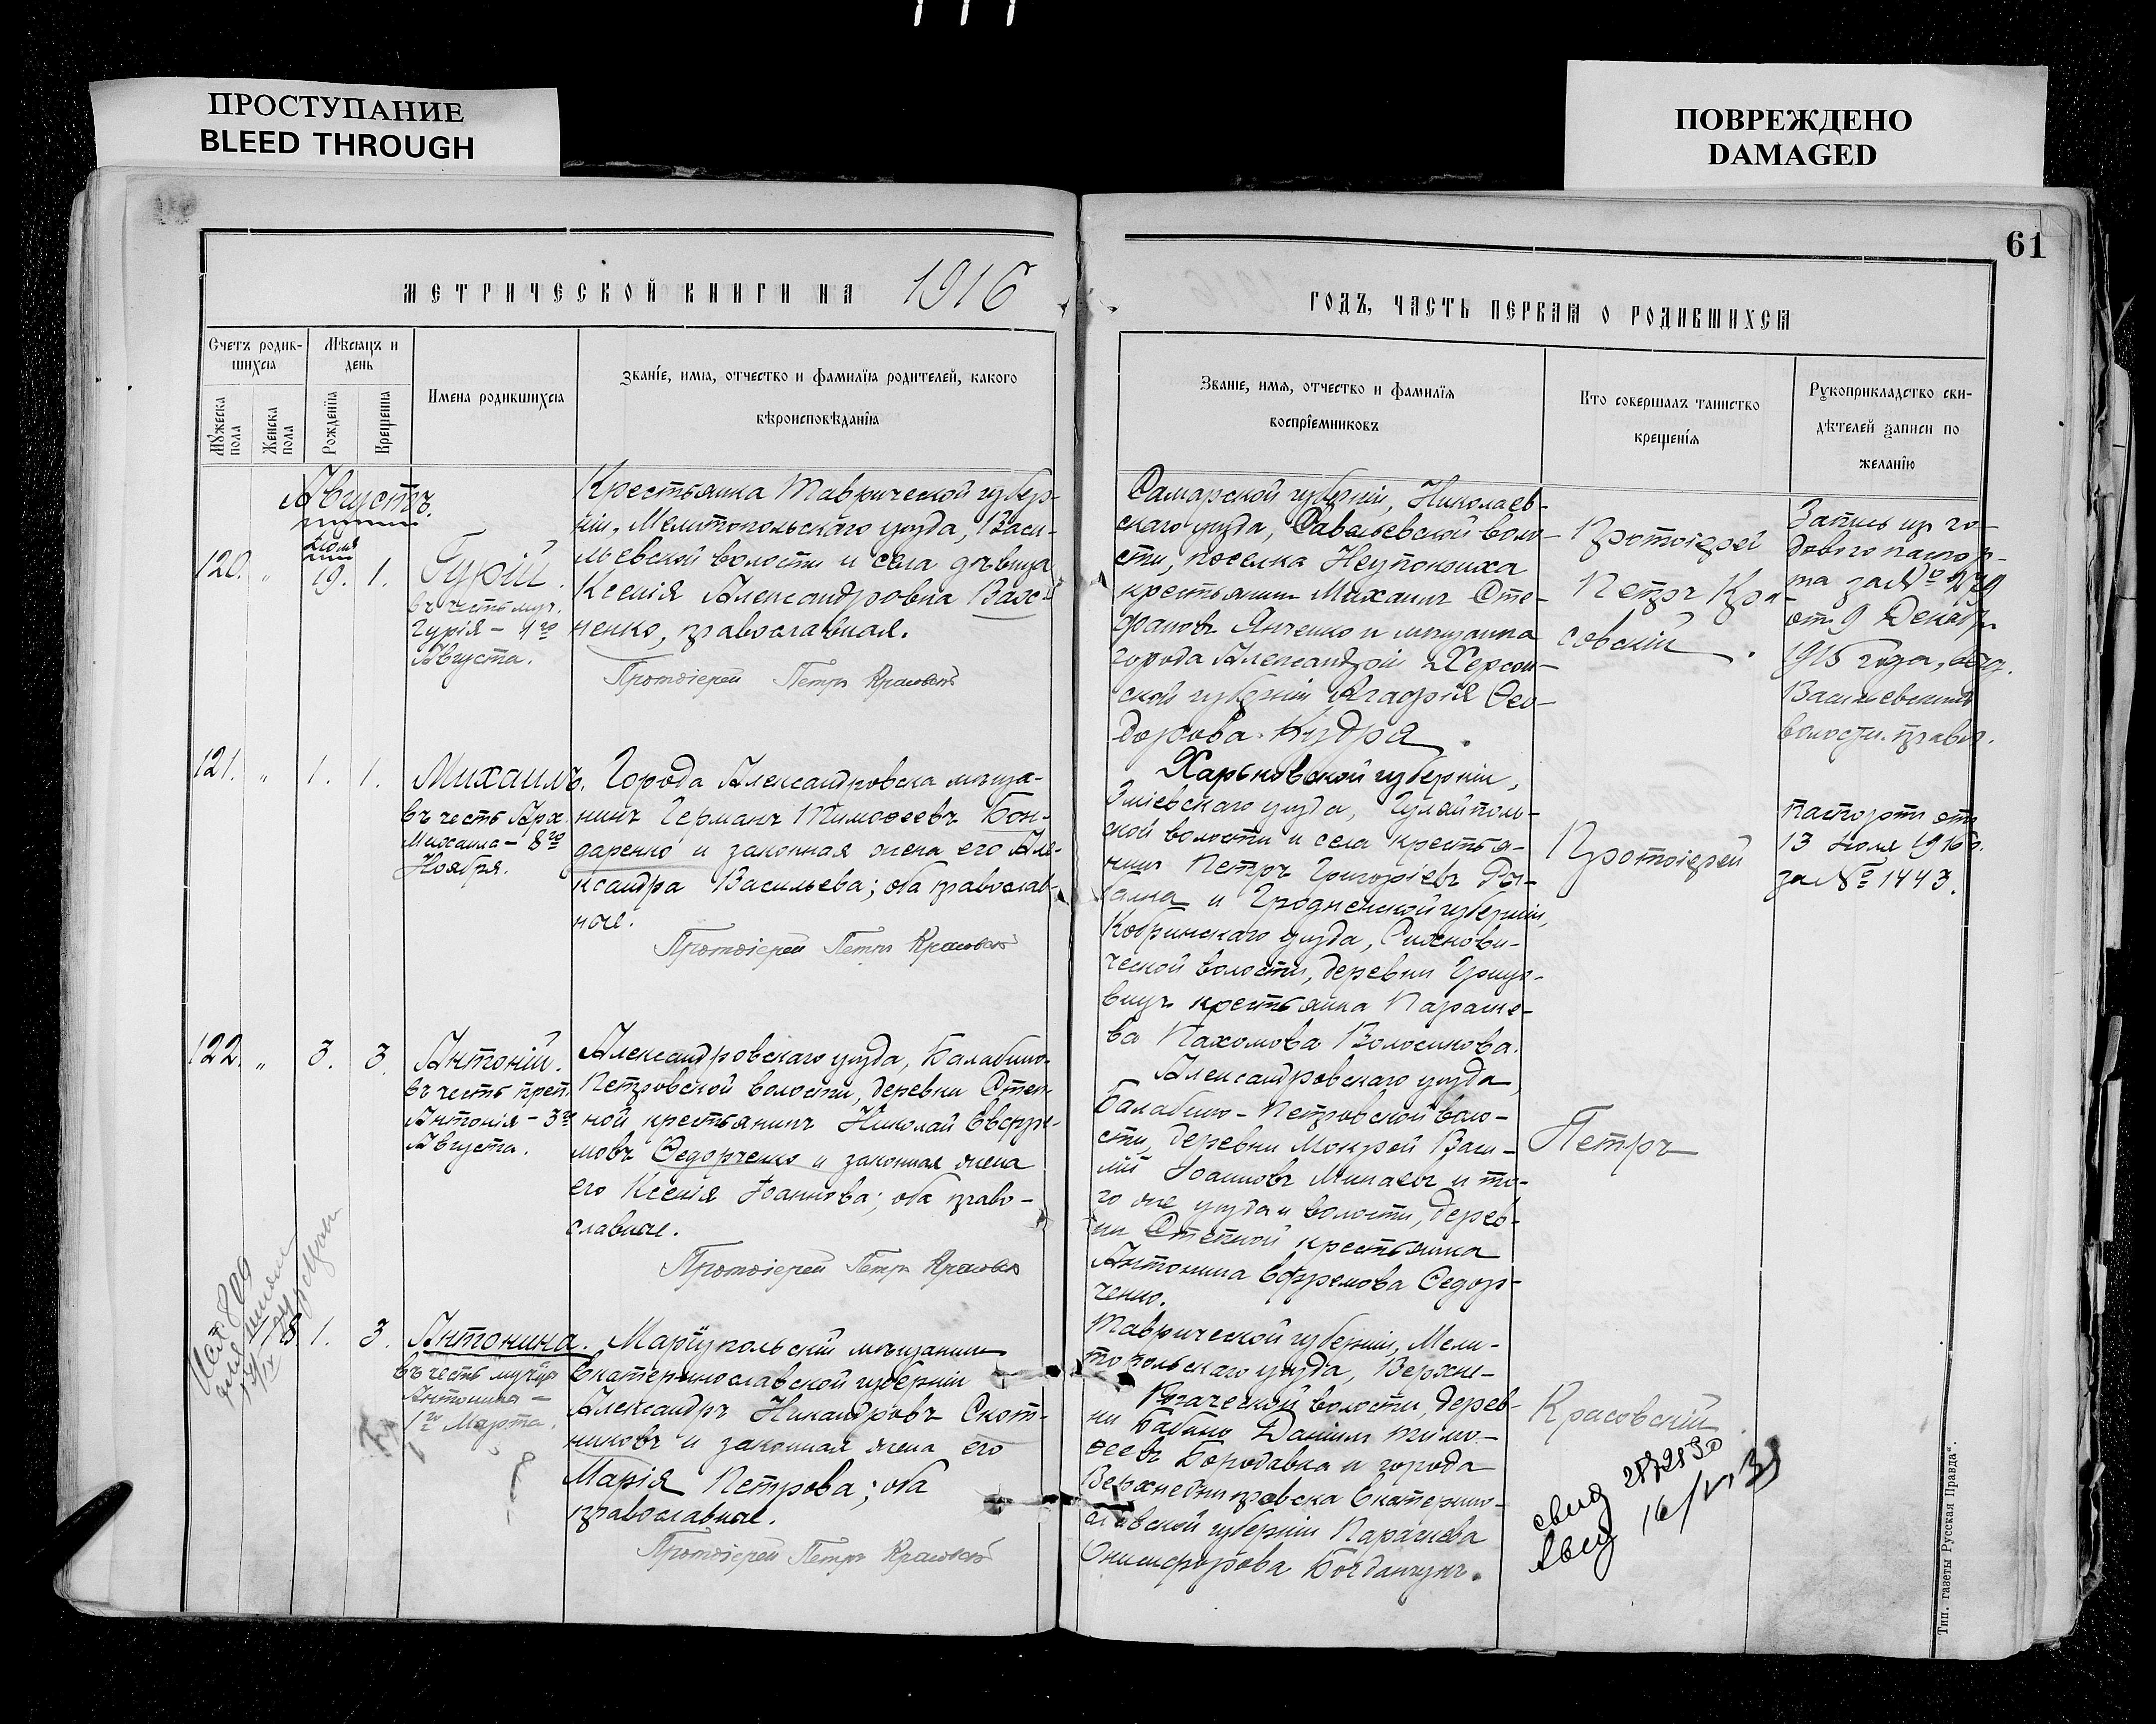 ПРОСТУПАНИЕ
BLEED THROUGH
ПОВРЕЖДЕНО
DAMAGED
61
МЕТРИЧЕСКОЙ КНИГИ НА 1916
ГОДЪ, ЧАСТЬ ПЕРВАЯ О РОДИВШИХСЯ
Счетъ родив-
шихся
Мѣсяцъ и
день
Мужеска
пола
Женска
пола
Рожденія
Крещенія
Имена родившихся
Званіе, имя, отчество и фамилія родителей, какого
вѣроисповѣданія
Званіе, имя, отчество и фамилія
воспріемниковъ
Кто совершалъ таинство
крещенія
Рукоприкладство сви-
дѣтелей записи по
желанію
Августъ.
Іюля
120. „ 19. 1. Гурій.
въ честь муч.
Гурія – 4го
Августа.
Крестьянка Таврической губер-
ніи, Мелитопольскаго уѣзда, Васи-
льевской волости и села дѣвица
Ксенія Александровна
ненко, православная.
Протоіерей Петръ Красовскій
Самарской губерніи, Николаев-
скаго уѣзда, Савельевской воло-
сти, поселка Неупокоиха
крестьянинъ Михаилъ Сте-
фановъ Янченко и мѣщанка
города Александріи Херсон-
ской губерніи Агафія Ѳео-
дорова Кудря.
Протоіерей
Петръ Кра-
совскій.
Запись из го-
дового паспор-
та за №
от 9 Декабр.
1915 года, выд.
Васильевским
волостн. правл.
121. „ 1. 1. Михаилъ.
въ честь Арх.
Михаила – 8го
Ноября.
Города Александровска мѣща-
нинъ Германъ Тимоѳеевъ Бон-
даренко и законная жена его Але-
ксандра Васильева; оба православ-
ные.
Протоіерей Петръ Красовскій
Харьковской губерніи,
Зміевскаго уѣзда, Гуляйполь-
ской волости и села крестья-
нинъ Петръ Григоріевъ
и Гродненской губерніи,
Кобринскаго уѣзда,
ческой волости, деревни
крестьянка Параске-
ва Пахомова Волосикова.
Протоіерей
Паспортъ отъ
13 Іюля 1916 г.
за № 1443.
122. „ 3. 3. Антоній.
въ честь преп.
Антонія – 3го
Августа.
Александровскаго уѣзда, Балабино-
Петровской волости, деревни Степ-
ной крестьянинъ Николай Евфре-
мовъ Ѳедорченко и законная жена
его Ксенія Іоаннова; оба право-
славные.
Протоіерей Петръ Красовскій
Александровскаго уѣзда,
Балабино-Петровской воло-
сти, деревни Мокрой Васи-
лій Іоанновъ Минаевъ и то-
го же уѣзда и волости, дерев-
ни Степной крестьянка
Антонина Евфремова Ѳедор-
ченко.
Петръ
1. 3. Антонина.
въ честь муч-цы
Антонины –
1го Марта.
Маріупольскій мѣщанинъ
Екатеринославской губерніи
Александръ Никандровъ Скот-
никовъ и законная жена его
Марія Петрова; оба
православные.
Протоіерей Петръ Красовскій
Таврической губерніи, Мели-
топольскаго уѣзда, Верхне-
Рогачекской волости, дерев-
ни Бабино Даніилъ Тимо-
ѳеевъ Бородавка и города
Верхнеднѣпровска Екатерино-
славской губерніи Параскева
Онисифорова Богданчукъ.
Красовскій
Тип. газеты „Русская Правда“.